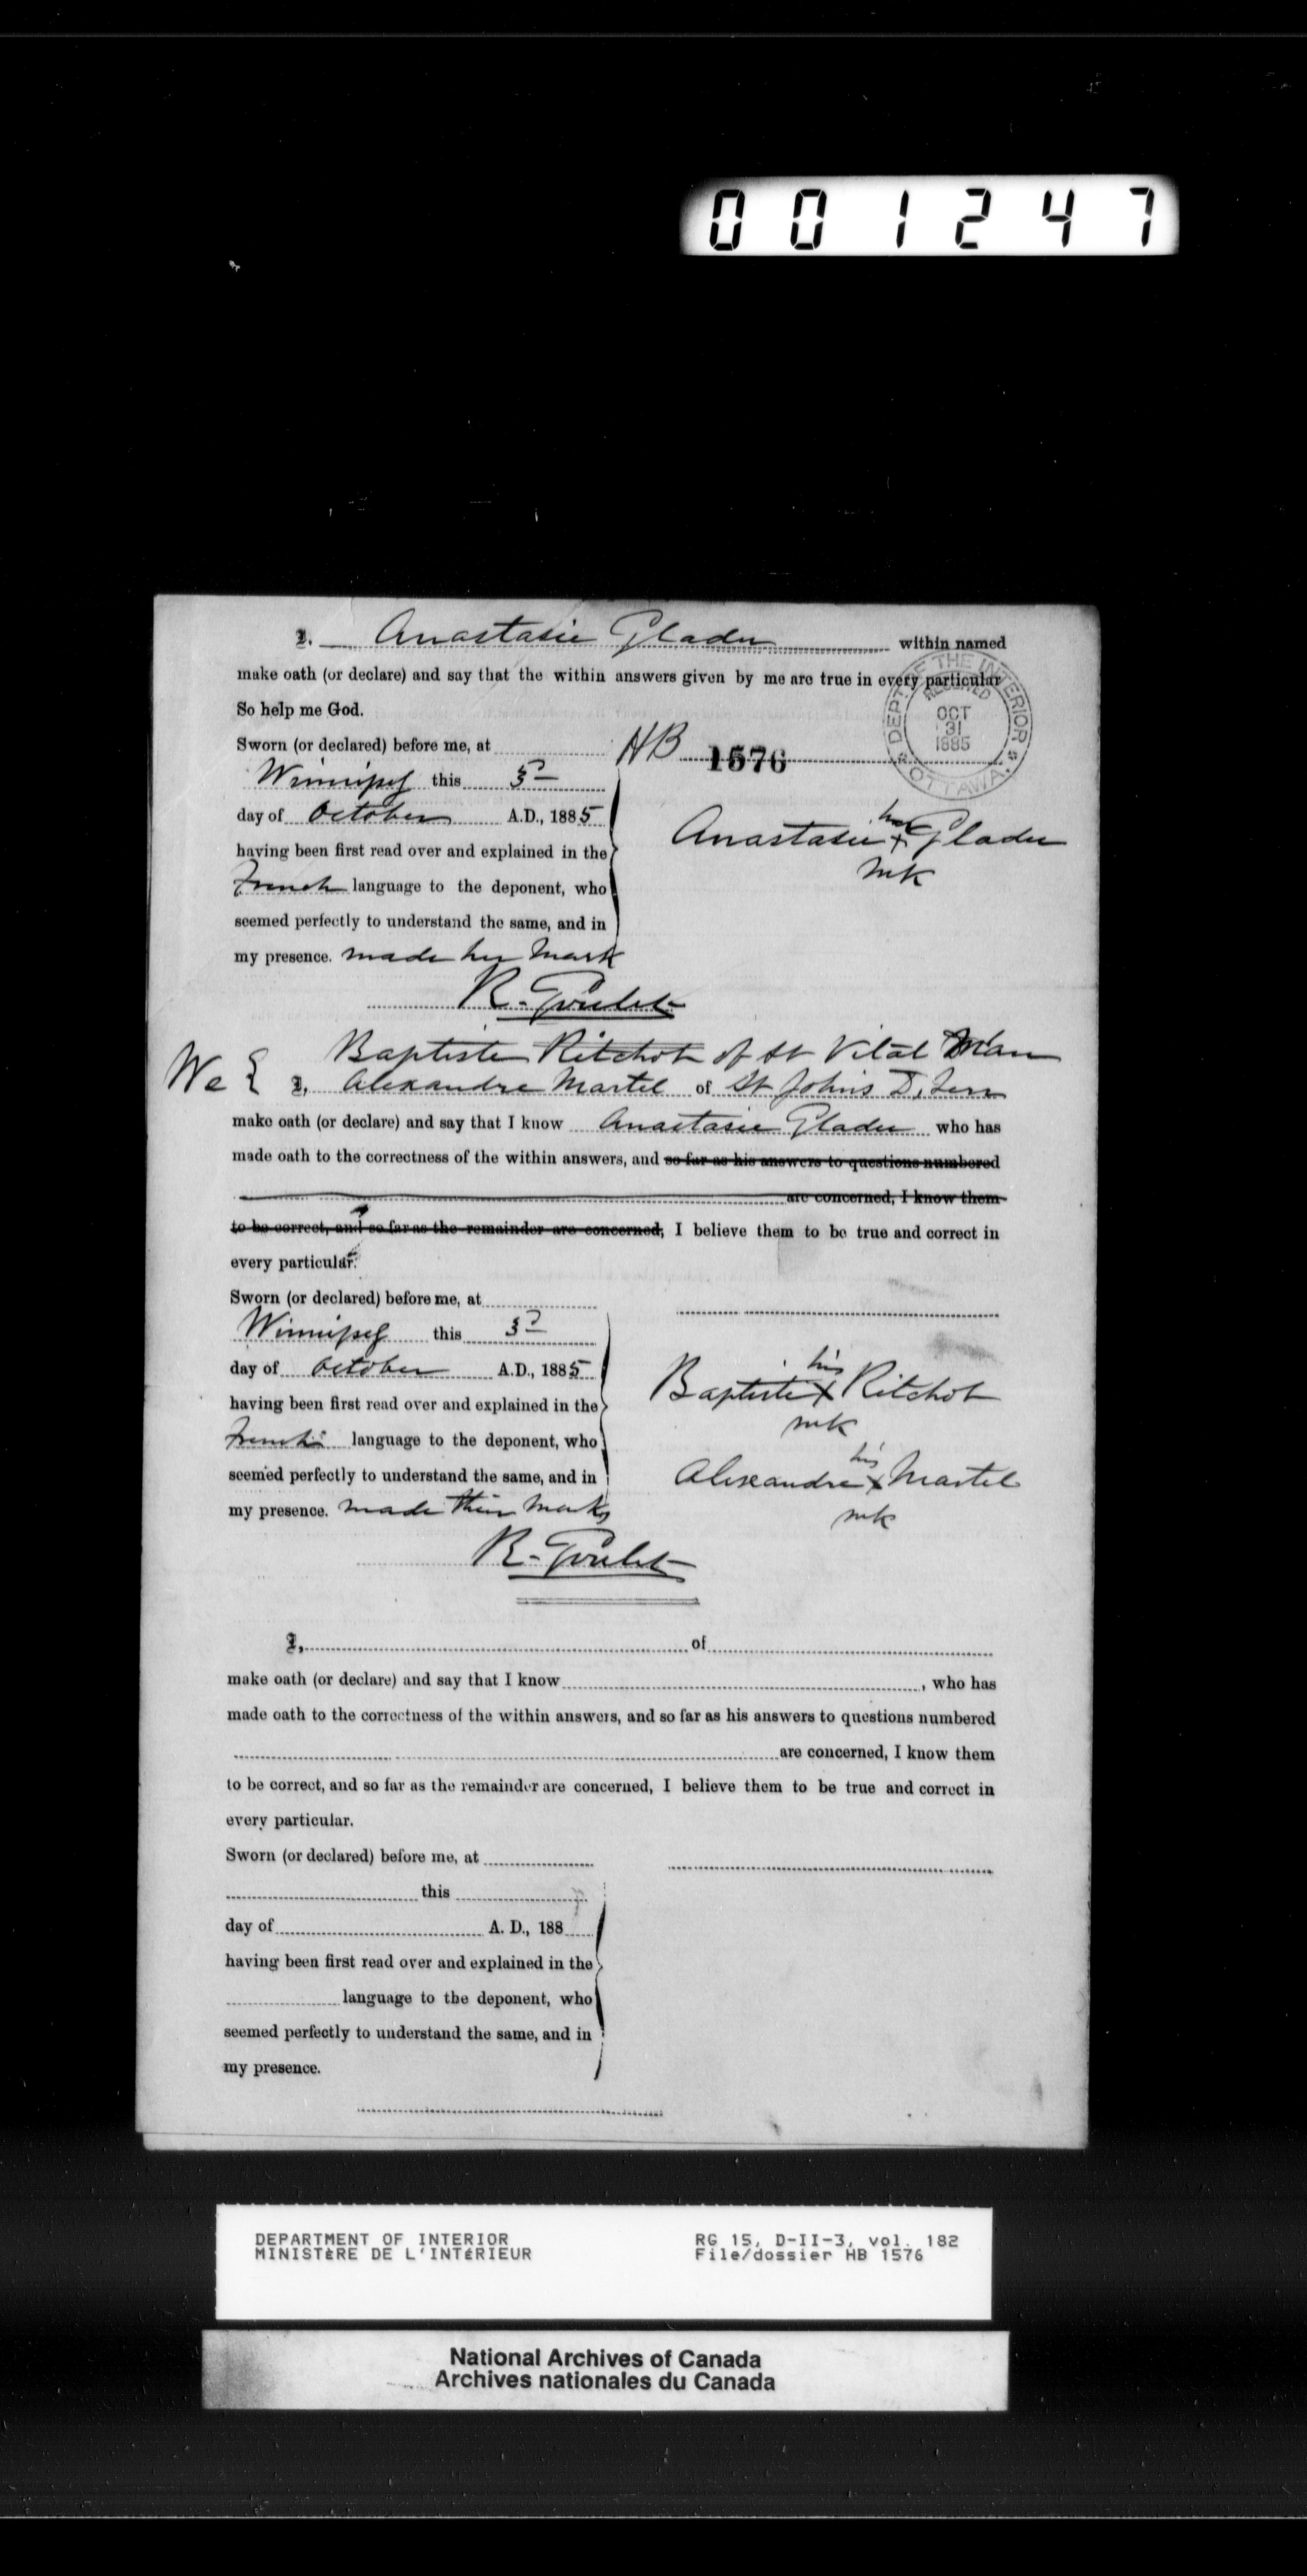 001247
I. Anastasie Gladu within named
make oath (or declare) and say that the within answers given by me are true in every particular
So help me God.
DEPT. OF THE INTERIOR
RECEIVED
OCT
31
1885
OTTAWA
Sworn (or declared) before me, at
HB 1576
Winnipeg this 3d
day of October A.D., 1885
her
Anastasie x Gladu
mk
having been first read over and explained in the
French language to the deponent, who
seemed perfectly to understand the same, and in
my presence. made her mark
R. Goulet
Baptiste Ritchot of St Vital Man
We { I, Alexandre Martel of St Johns D, Terr
make oath (or declare) and say that I know Anastasie Gladu who has
made oath to the correctness of the within answers, and so far as his answers to questions numbered
are concerned, I know them
to be correct, and so far as the remainder are concerned, I believe them to be true and correct in
every particular.
Sworn (or declared) before me, at
Winnipeg this 3d
day of October A.D., 1885
his
Baptiste x Ritchot
mk
having been first read over and explained in the
French language to the deponent, who
his
Alexandre x Martel
mk
seemed perfectly to understand the same, and in
my presence. made their marks
R. Goulet
I, of
make oath (or declare) and say that I know , who has
made oath to the correctness of the within answers, and so far as his answers to questions numbered
are concerned, I know them
to be correct, and so far as the remainder are concerned, I believe them to be true and correct in
every particular.
Sworn (or declared) before me, at
this
day of A. D., 188
having been first read over and explained in the
language to the deponent, who
seemed perfectly to understand the same, and in
my presence.
DEPARTMENT OF INTERIOR
MINISTÈRE DE L'INTÉRIEUR
RG 15, D-II-3, vol. 182
File/dossier HB 1576
National Archives of Canada
Archives nationales du Canada